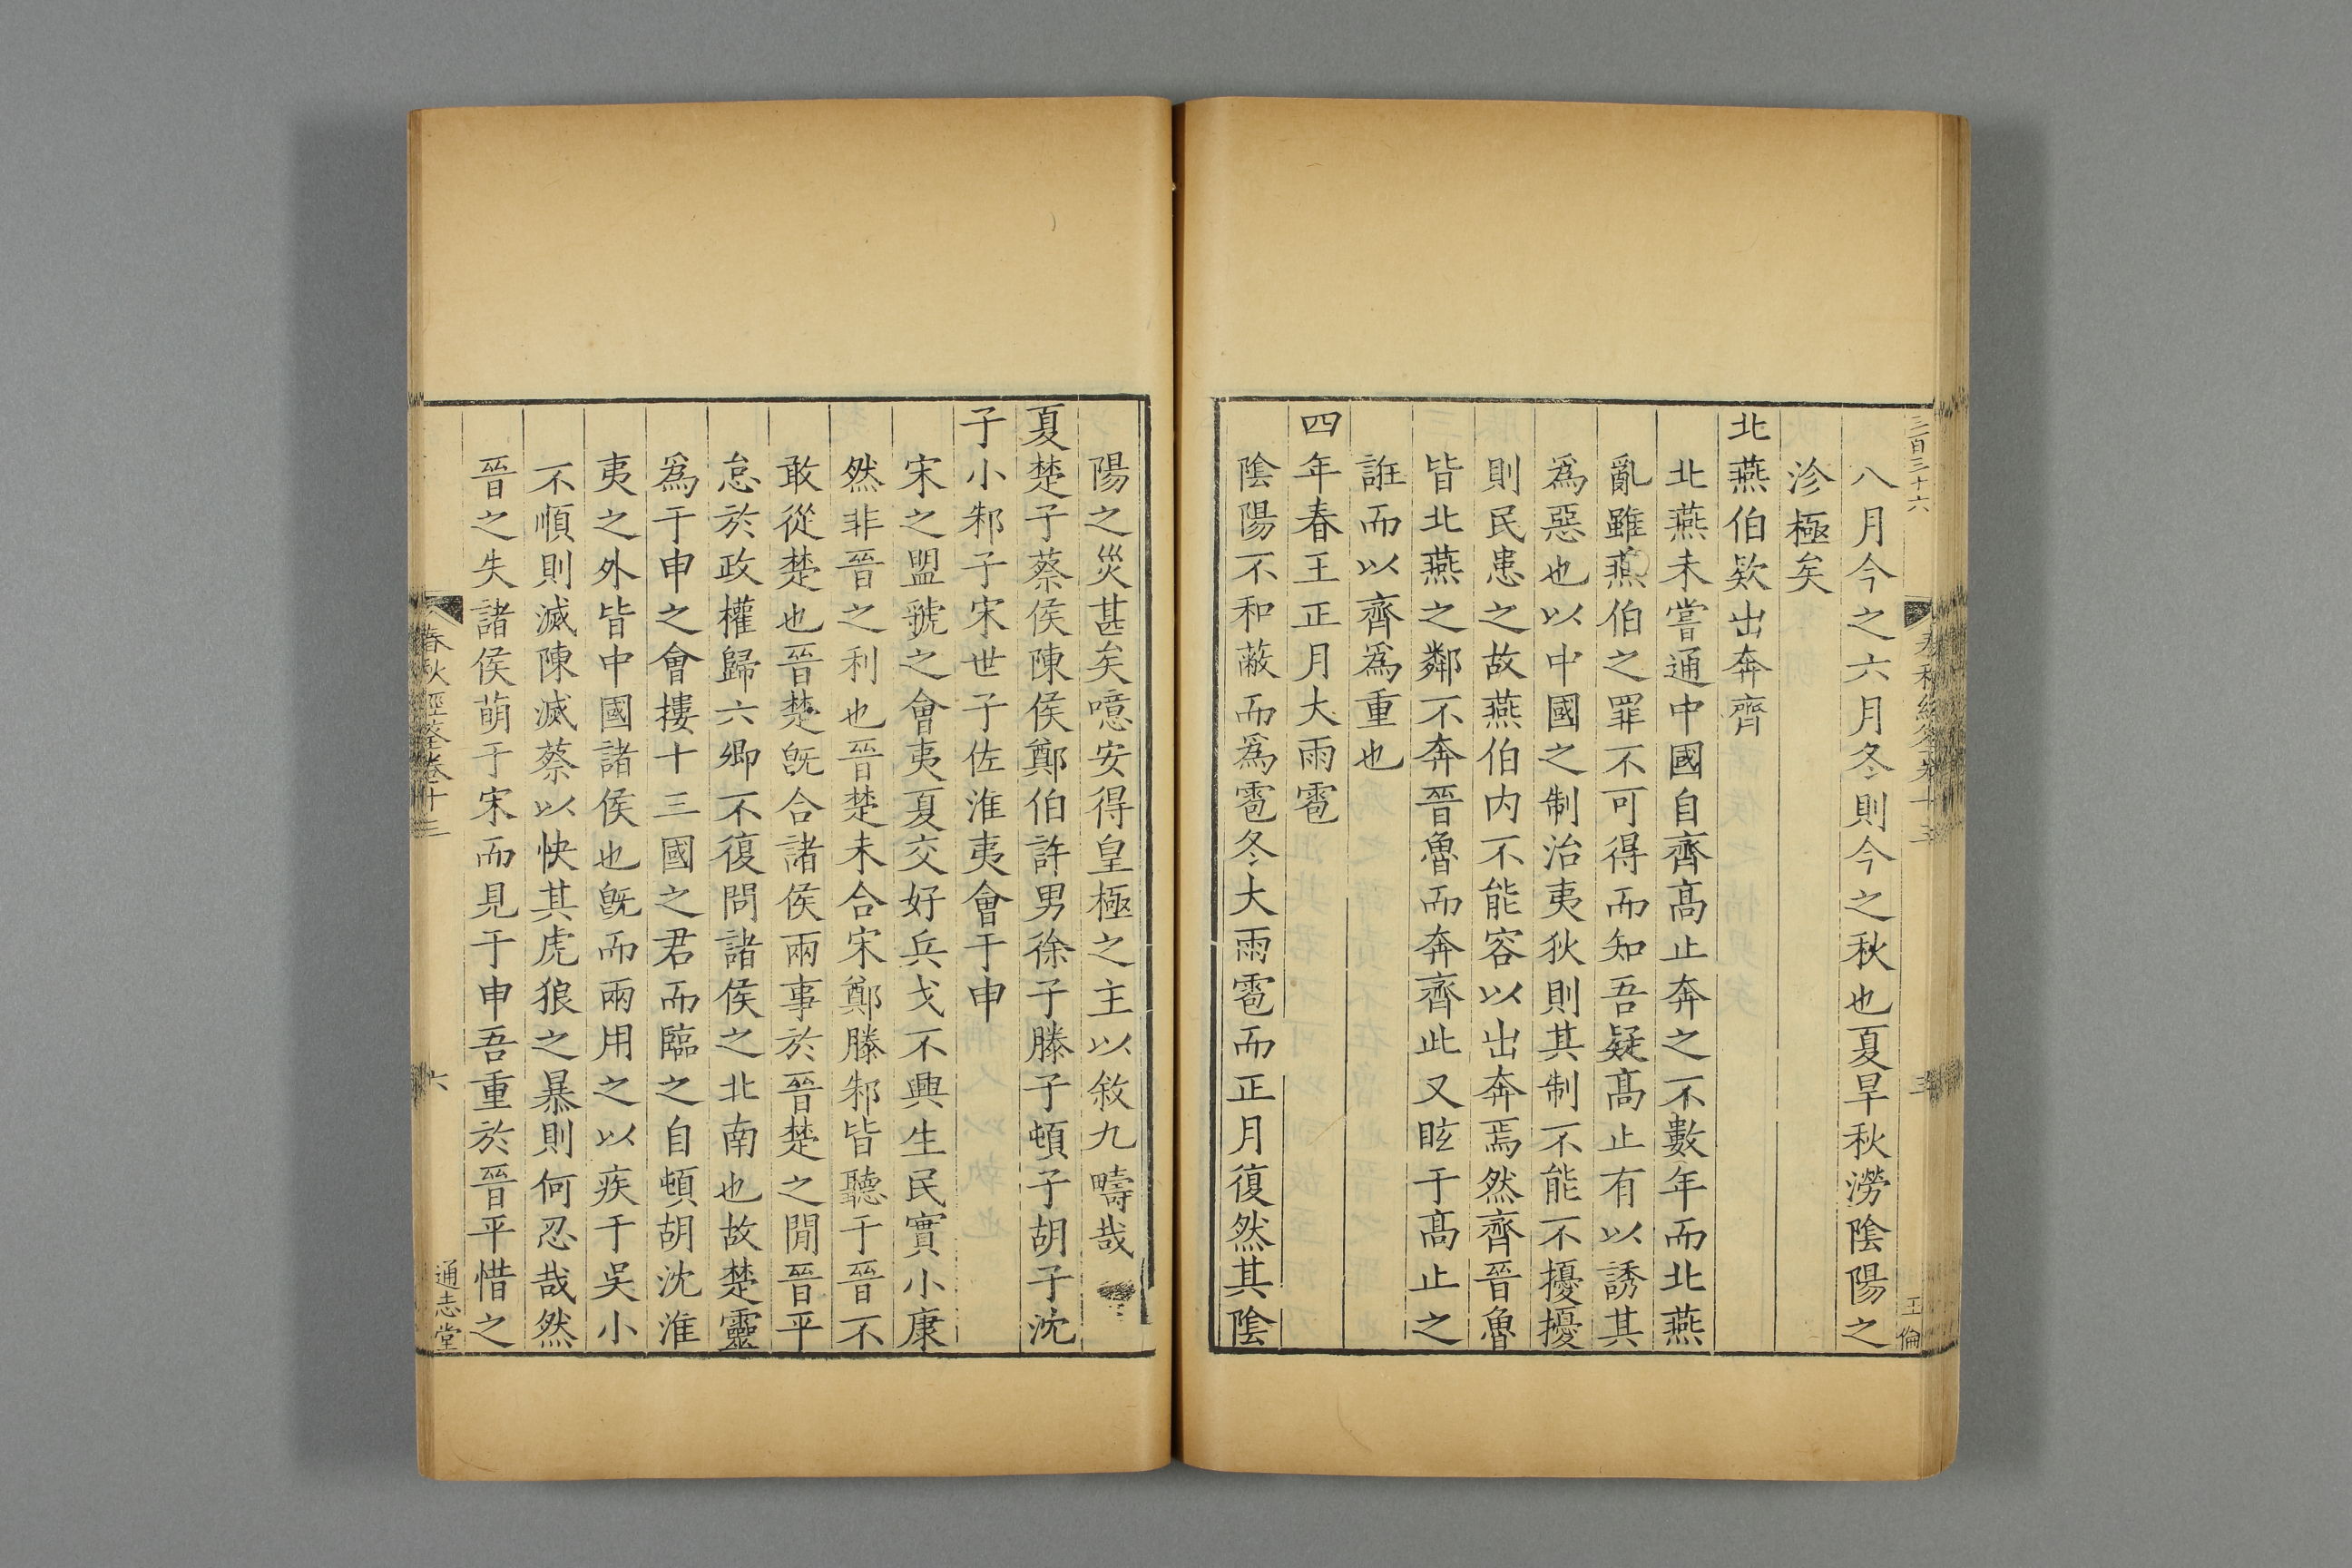 三百三十六
八月今之六月冬則今之秋也夏旱秋澇陰陽之
沴極矣
北燕伯欵出奔齊
北燕未嘗通中國自齊髙止奔之不數年而北燕
亂雖燕伯之罪不可得而知吾疑髙止有以誘其
爲惡也以中國之制治夷狄則其制不能不擾擾
則民患之故燕伯内不能容以出奔焉然齊晉魯
皆北燕之鄰不奔晉魯而奔齊此又眩于髙止之
誑而以齊爲重也
四年春王正月大雨雹
陰陽不和蔽而爲雹冬大雨雹而正月復然其陰
王倫
陽之災甚矣噫安得皇極之主以敘九疇哉
夏楚子蔡侯陳侯鄭伯許男徐子滕子頓子胡子沈
子小邾子宋世子佐淮夷會于申
宋之盟虢之會夷夏交好兵戈不興生民實小康
然非晉之利也晉楚未合宋鄭滕邾皆聽于晉不
敢從楚也晉楚旣合諸侯兩事於晉楚之閒晉平
怠於政權歸六卿不復問諸侯之北南也故楚靈
爲于申之會摟十三國之君而臨之自頓胡沈淮
夷之外皆中國諸侯也旣而兩用之以疾于吳小
不順則滅陳滅蔡以快其虎狼之暴則何忍哉然
晉之失諸侯萌于宋而見于申吾重於晉平惜之
春秋經筌卷十三
六
通志堂